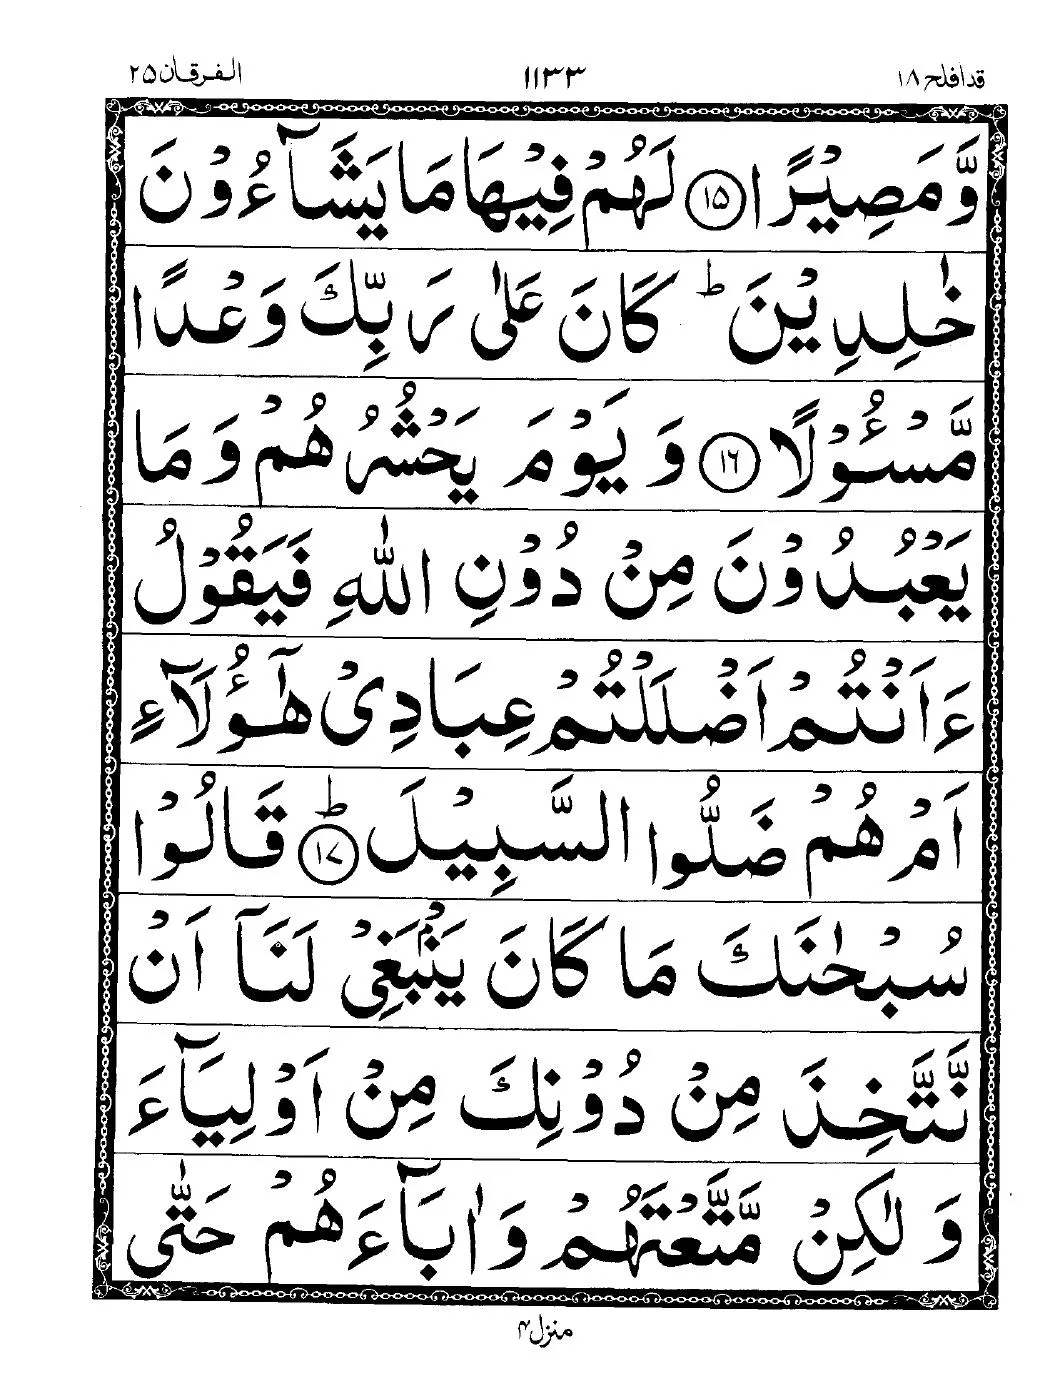 قد افلح ۱۸ ۱۱۳۳ الفرقان ۲۵
وَّمَصِيْرًا ۝۱۵ لَهُمْ فِيْهَا مَا يَشَآءُوْنَ
خٰلِدِيْنَ ؕ كَانَ عَلٰى رَبِّكَ وَعْدًا
مَّسْـُٔوْلًا ۝۱۶ وَيَوْمَ يَحْشُرُهُمْ وَمَا
يَعْبُدُوْنَ مِنْ دُوْنِ اللّٰهِ فَيَقُوْلُ
ءَاَنْتُمْ اَضْلَلْتُمْ عِبَادِيْ هٰٓؤُلَآءِ
اَمْ هُمْ ضَلُّوا السَّبِيْلَ ؕ۝۱۷ قَالُوْا
سُبْحٰنَكَ مَا كَانَ يَنْۢبَغِيْ لَنَآ اَنْ
نَّتَّخِذَ مِنْ دُوْنِكَ مِنْ اَوْلِيَآءَ
وَلٰكِنْ مَّتَّعْتَهُمْ وَاٰبَآءَهُمْ حَتّٰى
منزل ۴